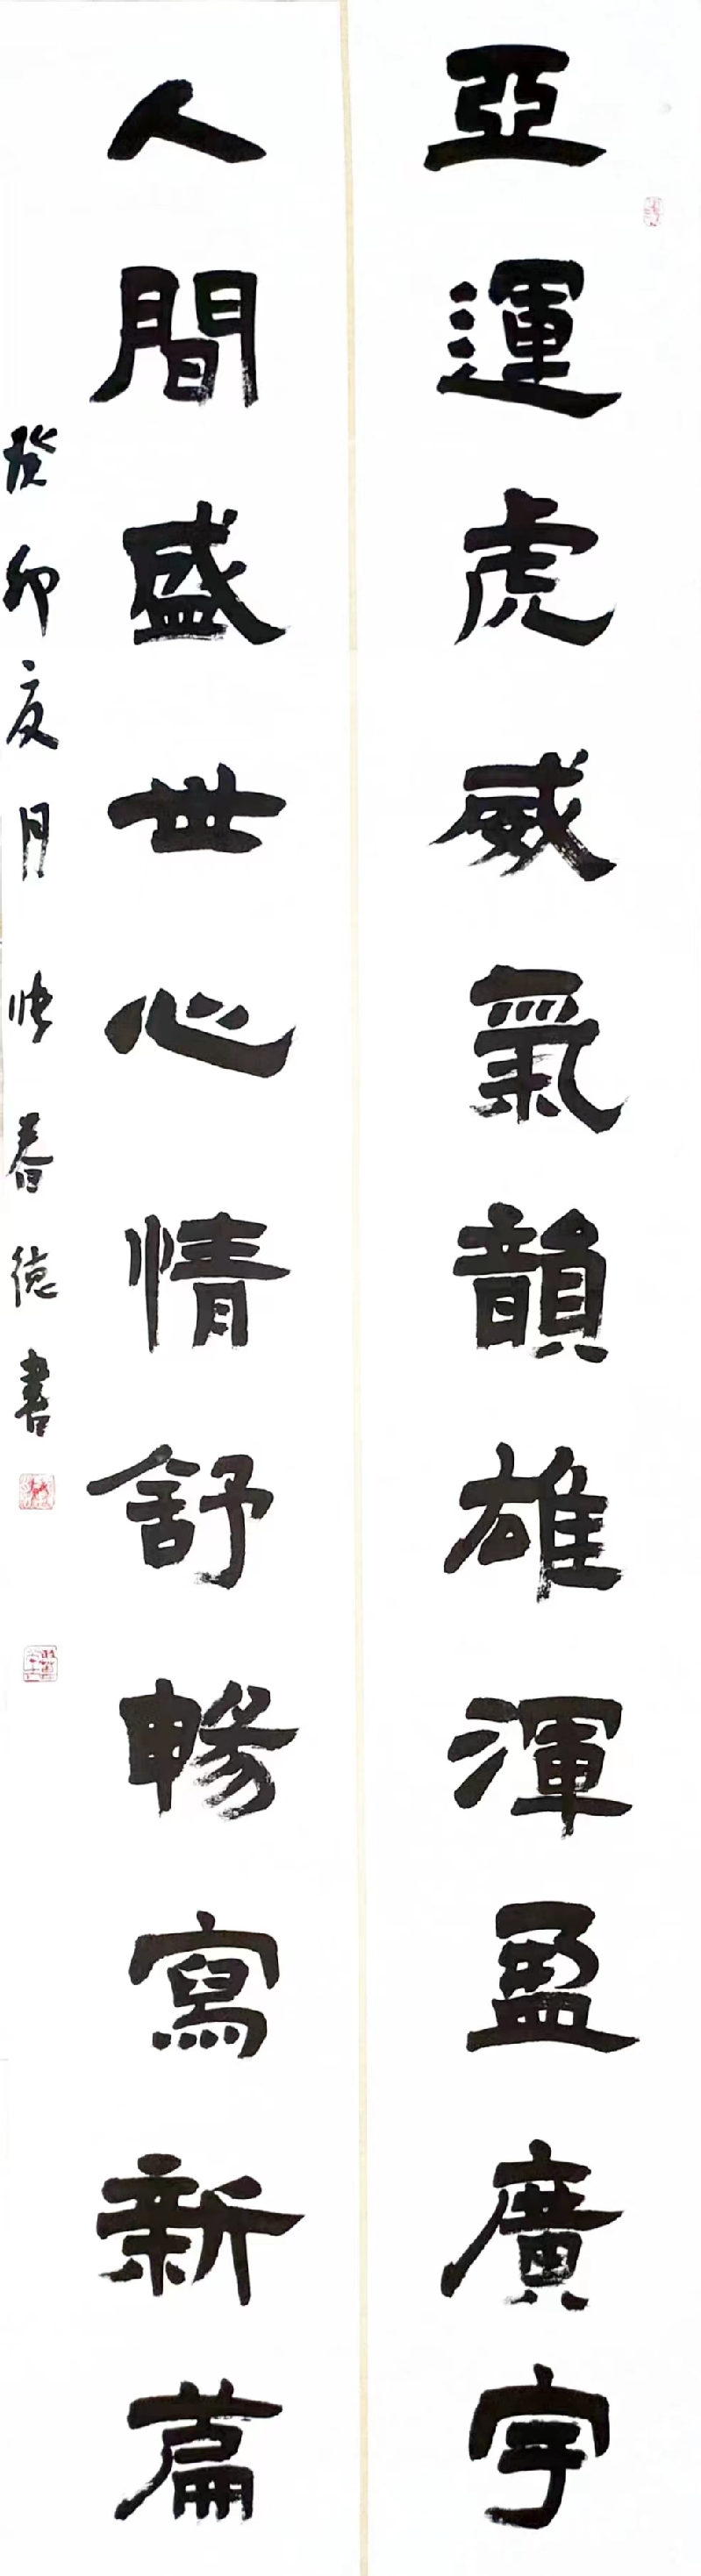 亞運虎威氣韻雄渾盈廣宇
人間盛世心情舒暢寫新篇
癸卯夏月 春德書